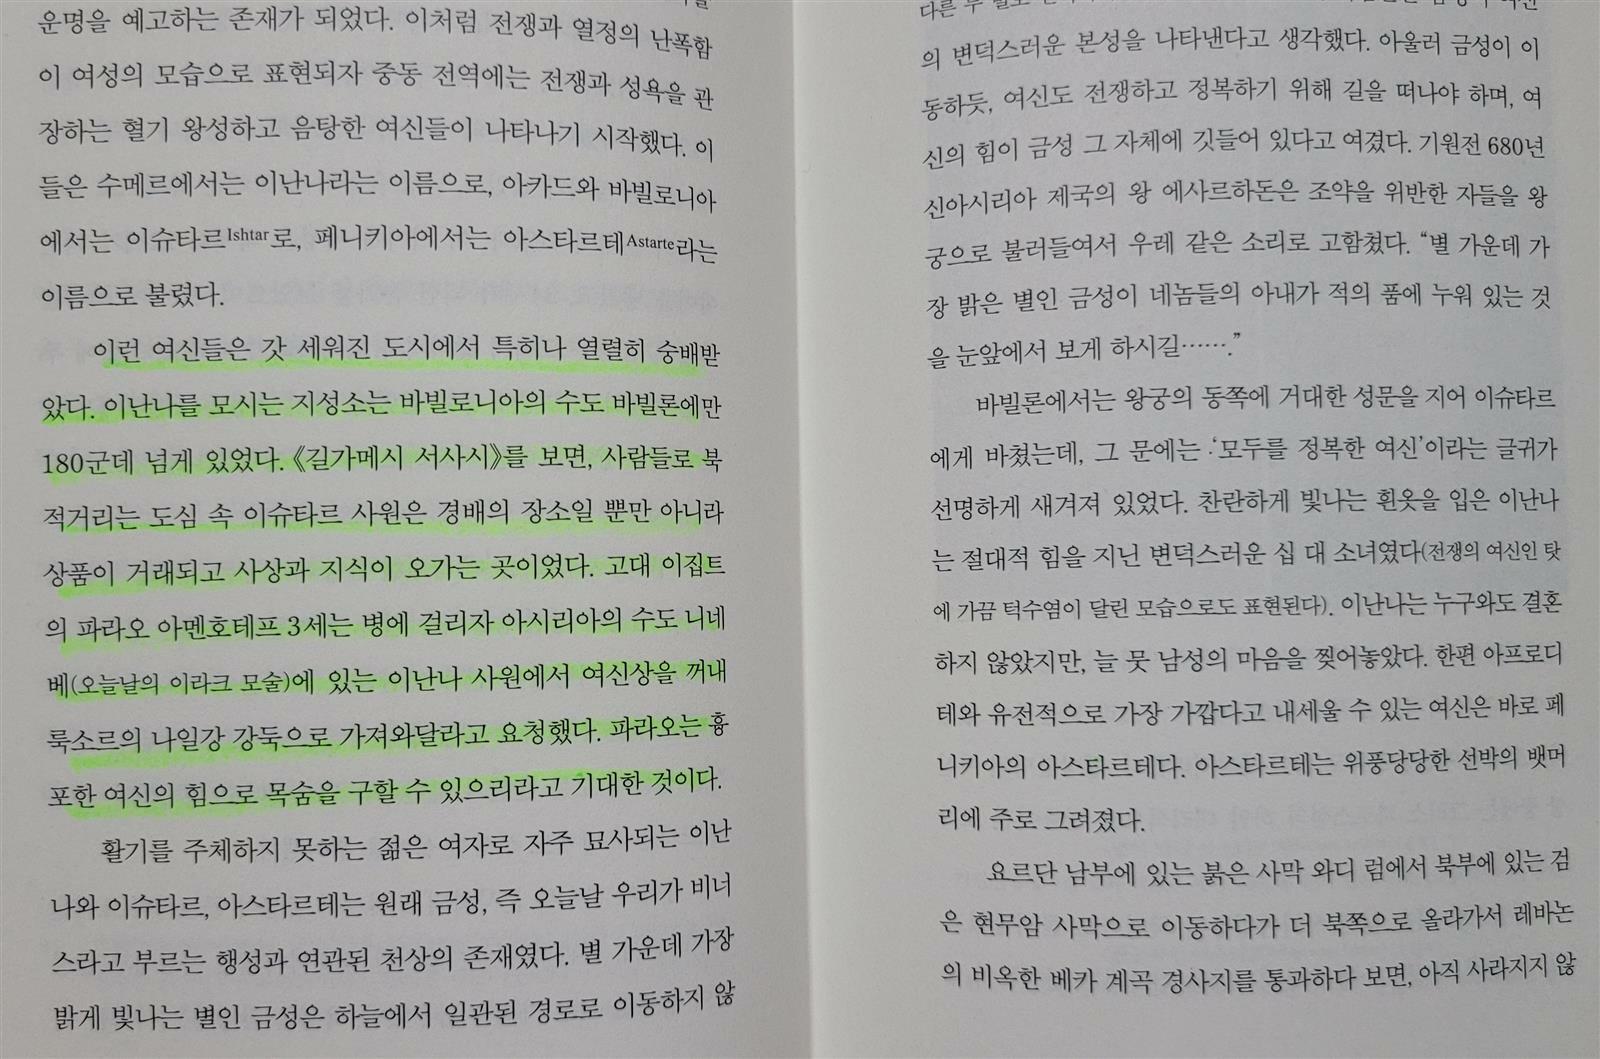 운명을 예고하는 존재가 되었다. 이처럼 전쟁과 열정의 난폭함
이 여성의 모습으로 표현되자 중동 전역에는 전쟁과 성욕을 관
장하는 혈기 왕성하고 음탕한 여신들이 나타나기 시작했다. 이
들은 수메르에서는 이난나라는 이름으로, 아카드와 바빌로니아
에서는 이슈타르Ishtar로, 페니키아에서는 아스타르테Astarte라는
이름으로 불렸다.
이런 여신들은 갓 세워진 도시에서 특히나 열렬히 숭배받
았다. 이난나를 모시는 지성소는 바빌로니아의 수도 바빌론에만
180군데 넘게 있었다. 《길가메시 서사시》를 보면, 사람들로 북
적거리는 도심 속 이슈타르 사원은 경배의 장소일 뿐만 아니라
상품이 거래되고 사상과 지식이 오가는 곳이었다. 고대 이집트
의 파라오 아멘호테프 3세는 병에 걸리자 아시리아의 수도 니네
베(오늘날의 이라크 모술)에 있는 이난나 사원에서 여신상을 꺼내
룩소르의 나일강 강둑으로 가져와달라고 요청했다. 파라오는 흉
포한 여신의 힘으로 목숨을 구할 수 있으리라고 기대한 것이다.
활기를 주체하지 못하는 젊은 여자로 자주 묘사되는 이난
나와 이슈타르, 아스타르테는 원래 금성, 즉 오늘날 우리가 비너
스라고 부르는 행성과 연관된 천상의 존재였다. 별 가운데 가장
밝게 빛나는 별인 금성은 하늘에서 일관된 경로로 이동하지 않
다른
의 변덕스러운 본성을 나타낸다고 생각했다. 아울러 금성이 이
동하듯, 여신도 전쟁하고 정복하기 위해 길을 떠나야 하며, 여
신의 힘이 금성 그 자체에 깃들어 있다고 여겼다. 기원전 680년
신아시리아 제국의 왕 에사르하돈은 조약을 위반한 자들을 왕
궁으로 불러들여서 우레 같은 소리로 고함쳤다. “별 가운데 가
장 밝은 별인 금성이 네놈들의 아내가 적의 품에 누워 있는 것
을 눈앞에서 보게 하시길…….”
바빌론에서는 왕궁의 동쪽에 거대한 성문을 지어 이슈타르
에게 바쳤는데, 그 문에는 ‘모두를 정복한 여신’이라는 글귀가
선명하게 새겨져 있었다. 찬란하게 빛나는 흰옷을 입은 이난나
는 절대적 힘을 지닌 변덕스러운 십 대 소녀였다(전쟁의 여신인 탓
에 가끔 턱수염이 달린 모습으로도 표현된다). 이난나는 누구와도 결혼
하지 않았지만, 늘 뭇 남성의 마음을 찢어놓았다. 한편 아프로디
테와 유전적으로 가장 가깝다고 내세울 수 있는 여신은 바로 페
니키아의 아스타르테다. 아스타르테는 위풍당당한 선박의 뱃머
리에 주로 그려졌다.
요르단 남부에 있는 붉은 사막 와디 럼에서 북부에 있는 검
은 현무암 사막으로 이동하다가 더 북쪽으로 올라가서 레바논
의 비옥한 베카 계곡 경사지를 통과하다 보면, 아직 사라지지 않